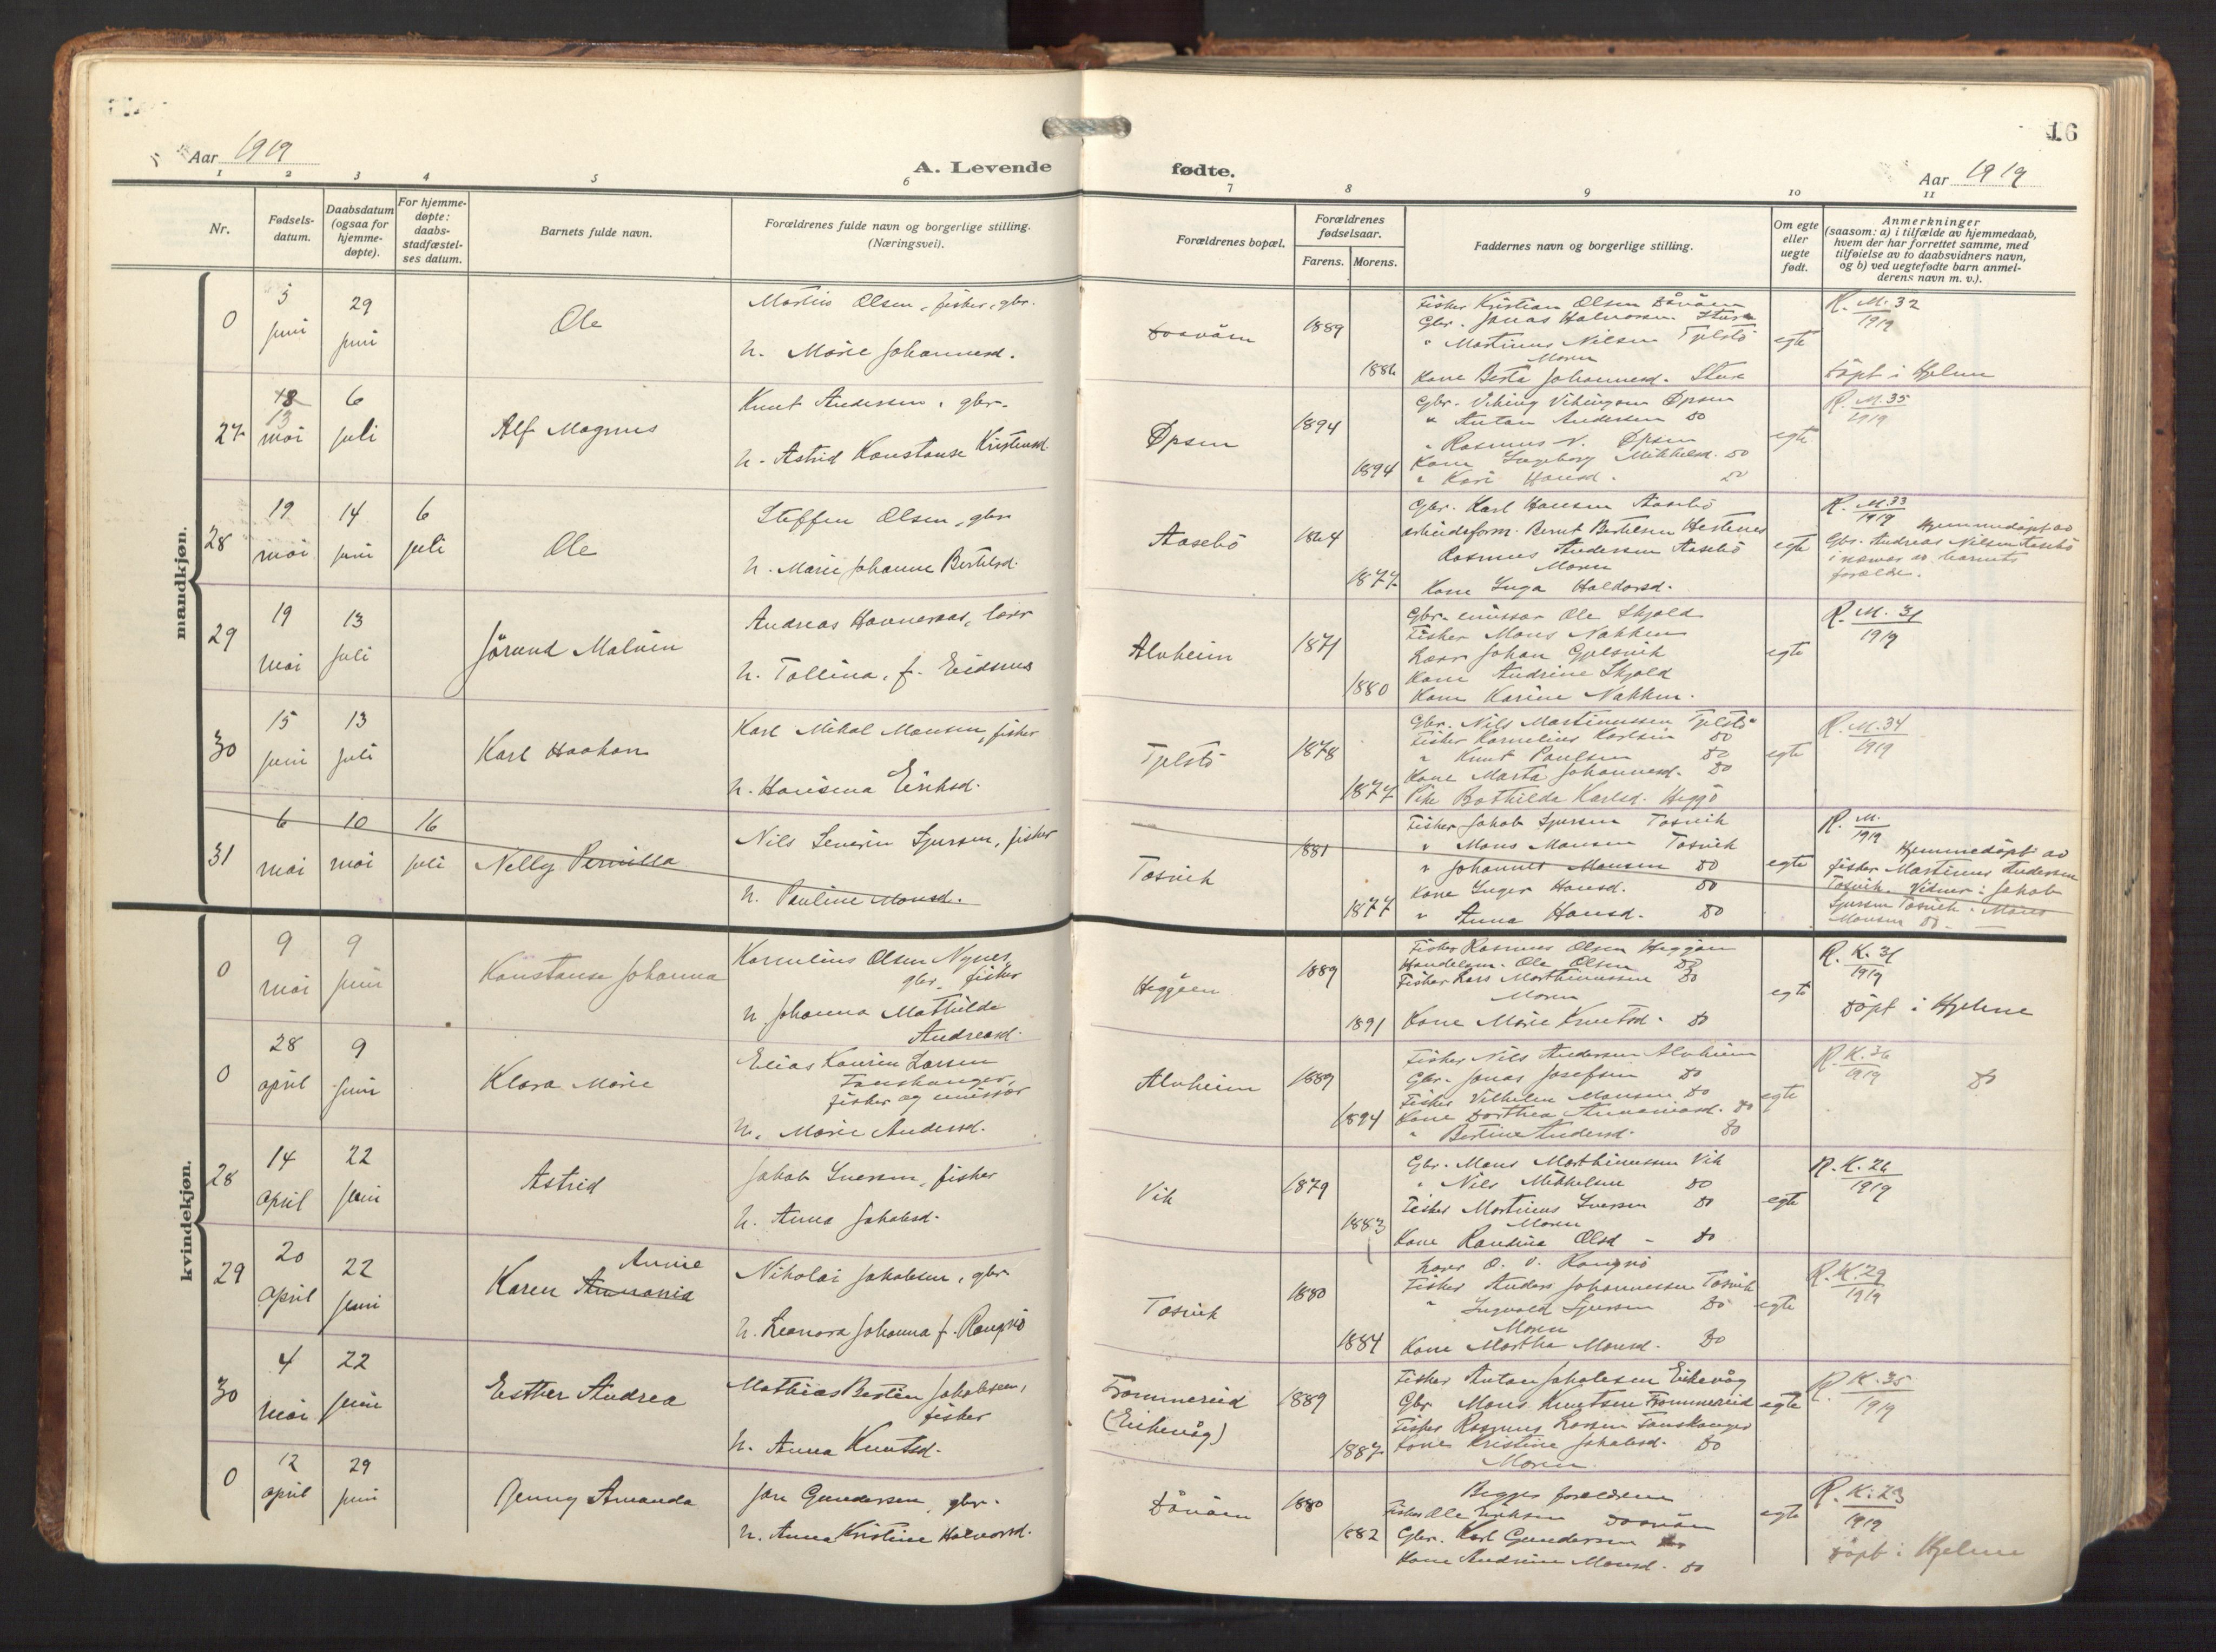 16
Aar 1919
A. Levende
fødte.
Aar 1919
1 2 3 4 5 6 7 8 9 10 11
Nr.
Fødsels-
datum.
Daabsdatum
(ogsaa for
hjemme-
døpte).
For hjemme-
døpte:
daabs-
stadfæstel-
ses datum.
Barnets fulde navn.
Forældrenes fulde navn og borgerlige stilling.
(Næringsvei).
Forældrenes bopæl.
Forældrenes
fødselsaar.
Farens. Morens.
Faddernes navn og borgerlige stilling.
Om egte
eller
uegte
født.
Anmerkninger
(saasom: a) i tilfælde av hjemmedaab,
hvem der har forrettet samme, med
tilføielse av to daabsvidners navn,
og b) ved uegtefødte barn anmel-
derens navn m. v.).
mandkjøn.
0
5
juni
29
juni
Ole
Martius Olsen, fisker, gbr.
h. Marie Johannesd.
1889
1886
Fisker Kristian Olsen Dåvöen
Gbr. Jonas Halvorsen Sture
" Martinus Nilsen Tjelstö
Moren
Kone Berta Johannesd. Sture
egte
R. M. 32
1919
Döpt i Hjelme
27
18
13
mai
6
juli
Alf Magnus
Knut Andersen, gbr.
h. Astrid Konstanse Kristensd.
Øpsen
1894
1894
Gbr. Viking Vikingsen Øpsen
" Anton Andersen do
" Rasmus V. Øpsen
Kone Ingeborg Mikkelsd. do
" Kari Hansd. do
egte
R. M. 35
1919
28
19
mai
14
juni
6
juli
Ole
Steffen Olsen, gbr.
h. Marie Johanne Bertelsd.
Aasebö
1864
1877
Gbr. Karl Hansen Aasebö
Arbeidsform. Bernt Bertelsen Hestenes
Rasmus Andersen Aasebö
Moren
Kone Inga Haldorsd.
egte
R. M. 33
1919 Hjemmedöpt av
Gbr. Andreas Nilsen Aasebö
i nærvær av barnets
forældre.
29
19
mai
13
juli
Jörund Malvin
Andreas Hanneraas, lærer
h. Tollina, f. Eidsnes
Alvheim
1871
1880
Gbr. emissær Ole Skjold
Fisker Mons Nakken
Lærer Johan Gjelsvik
Kone Andrine Skjold
Kone Karine Nakken.
egte
R. M. 31
1919
30
15
juni
13
juli
Karl Haakon
Karl Mikal Monsen, fisker
h. Hansina Eriksd.
Tjelstö
1878
1877
Gbr. Nils Martinussen Tjelstö
Fisker Kornelius Karlsen do
" Knut Paulsen do
Kone Marta Johannesd. do
Pike Bothilde Karlsd. Heggö
egte
R. M. 34
1919
31
6
mai
10
mai
16
juli
Nelly Pernilla
Nils Severin Sjursen, fisker
h. Pauline Monsd.
Tosvik
1881
1877
Fisker Jakob Sjursen Tosvik
" Mons Monsen Tosvik
" Johannes Monsen do
Kone Inger Hansd. do
" Anna Hansd. do
egte
R. M.
1919 Hjemmedöpt av
fisker Martinus Andersen
Tosvik. Vidner: Jakob
Sjursen Tosvik. Mons
Monsen do.
kvindekjøn.
0
9
mai
9
juni
Konstanse Johanna
Kornelius Olsen Nynes,
gbr, fisker
h. Johanna Mathilde
Andreasd.
Heggöen
1889
1891
Fisker Rasmus Olsen Heggöen
Handelsm. Ole Olsen do
Fisker Lars Marthinussen do
Moren
Kone Marie Knutsd. do
egte
R. K. 31
1919
Döpt i Hjelme
0
28
april
9
juni
Klara Marie
Elias Kaurin Larsen
fisker og emissær
h. Marie Andersd.
Alvheim
1889
1894
Fisker Nils Andersen Alvheim
Gbr. Jonas Josefsen do
Fisker Vilhelm Monsen do
Kone Dorthea Ananiasd. do
" Bertine Andersd. do
egte
R. K. 36
1919
do
28
14
april
22
juni
Astrid
Jakob Iversen, fisker
h. Anna Jakobsd.
Vik
1879
1883
Gbr. Mons Marthinussen Vik
" Nils Mikkelsen do
Fisker Martinus Iversen do
Moren
Kone Randina Olsd. do
egte
R. K. 26
1919
29
20
april
22
juni
Annie
Karen
Nikolai Jakobsen, gbr
h. Leonora Johanna f. Rongvö
Tosvik
1880
1884
Lærer O. O. Rongvö
Fisker Anders Johannessen Tosvik
" Ingvald Sjursen do
Moren
Kone Martha Monsd. do
egte
R. K. 29
1919
30
4
mai
22
juni
Esther Andrea
Mathias Bertin Jakobsen,
fisker
h. Anna Knutsd.
Frommereid
(Eikevåg)
1889
1887
Fisker Anton Jakobsen Eikevåg
Gbr Mons Knutsen Frommereid
Fisker Rasmus Larsen
Kone Kristine Jakobsd. do
Moren
egte
R. K. 35
1919
0
12
april
29
juni
Jenny Amanda
Jon Gundersen, gbr.
h. Anna Kristine Halvorsd.
Dåvöen
1880
1882
Begge forældrene
Fisker Ole Eriksen
Gbr. Karl Gundersen do
Kone Andrine Monsd. do
egte
R. K. 23
1919
Döpt i Hjelme